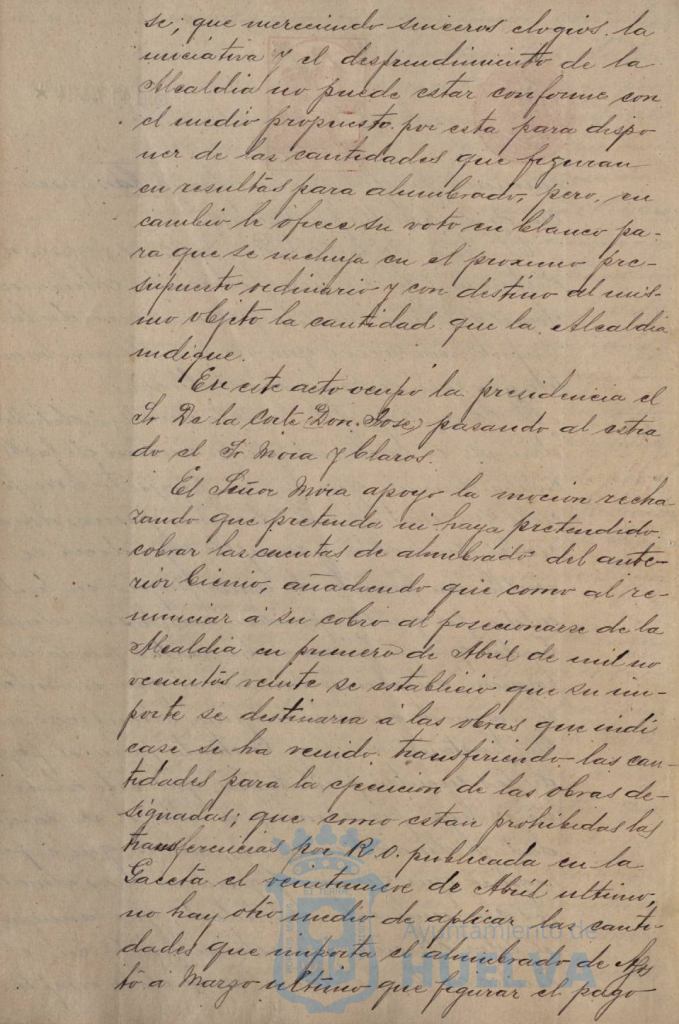 se; que mereciendo sinceros elogios la
iniciativa y el desprendimiento de la
Alcaldia no puede estar conforme con
el medio propuesto por esta para dispo
ner de las cantidades que figuran
en resultas para alumbrado, pero, en
cambio le ofrece su voto en blanco pa-
ra que se incluya en el proximo pre-
supuesto ordinario y con destino al mis-
mo objeto la cantidad que la Alcaldia
indique.
En este acto ocupó la presidencia el
Sr De la Corte (Don Jose) pasando al estra
do el Sr Mora y Claros.
El Señor Mora apoyo la mocion recha
zando que pretenda ni haya pretendido
cobrar las cuentas de alumbrado del ante-
rior bienio, añadiendo que como al re-
nunciar á su cobro al posecionarse de la
Alcaldia en primero de Abril de mil no
vecientos veinte se establecio que su im-
porte se destinaria á las obras que indi
case se ha venido transfiriendo las can-
tidades para la ejecucion de las obras de-
signadas; que como estan prohibidas las
transferencias por R.O. publicada en la
Gaceta el veintinueve de Abril ultimo,
no hay otro medio de aplicar las canti-
dades que importa el alumbrado de Agos
to á Marzo ultimo que figurar el pago
Ayuntamiento de
HUELVA